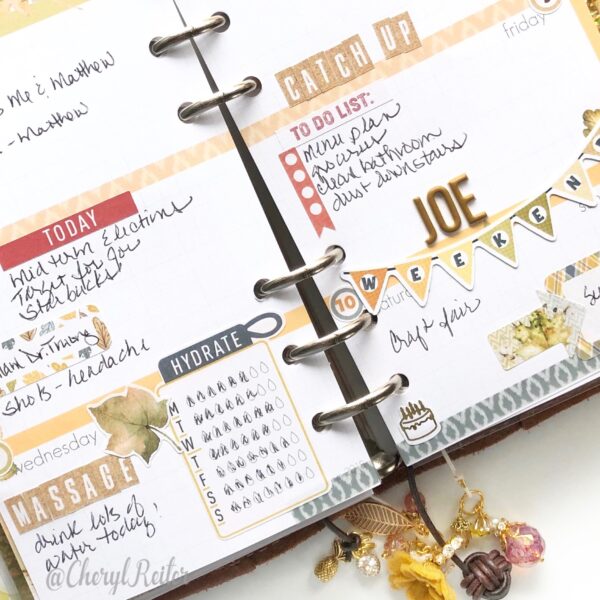 Me & Matthew
- Matthew
TODAY
Mid term Elections
Target for Joe
Starbucks
Dr. Truong
Shots - headache
wednesday
MASSAGE
drink lots of
water today!
HYDRATE
M
T
W
T
F
S
S
CATCH UP
friday
TO DO LIST:
menu plan
groceries
clean bathroom
dust downstairs
JOE
WEEKEND
10
Craft fair
@CherylReiter